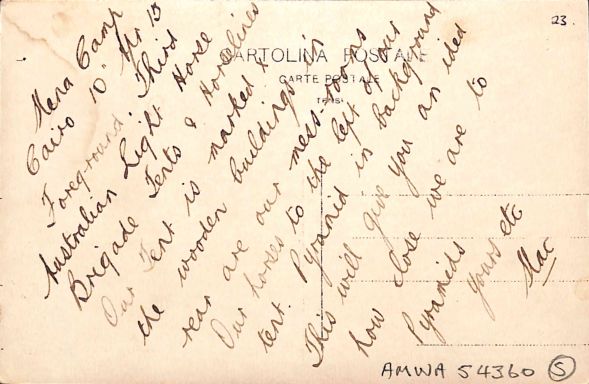 23.
CARTOLINA POSTALE
CARTE POSTALE
Mena Camp
Cairo 10" Mr 15
Foreground: Third
Australian Light Horse
Brigade Tents & Horselines
Our Tent is marked x
the wooden buildings in
rear are our mess-rooms
Our horses to the left of our
tent. Pyramid in background
This will give you an idea
how close we are to
Pyramids
Yours etc
Mac
AMWA 54360 S